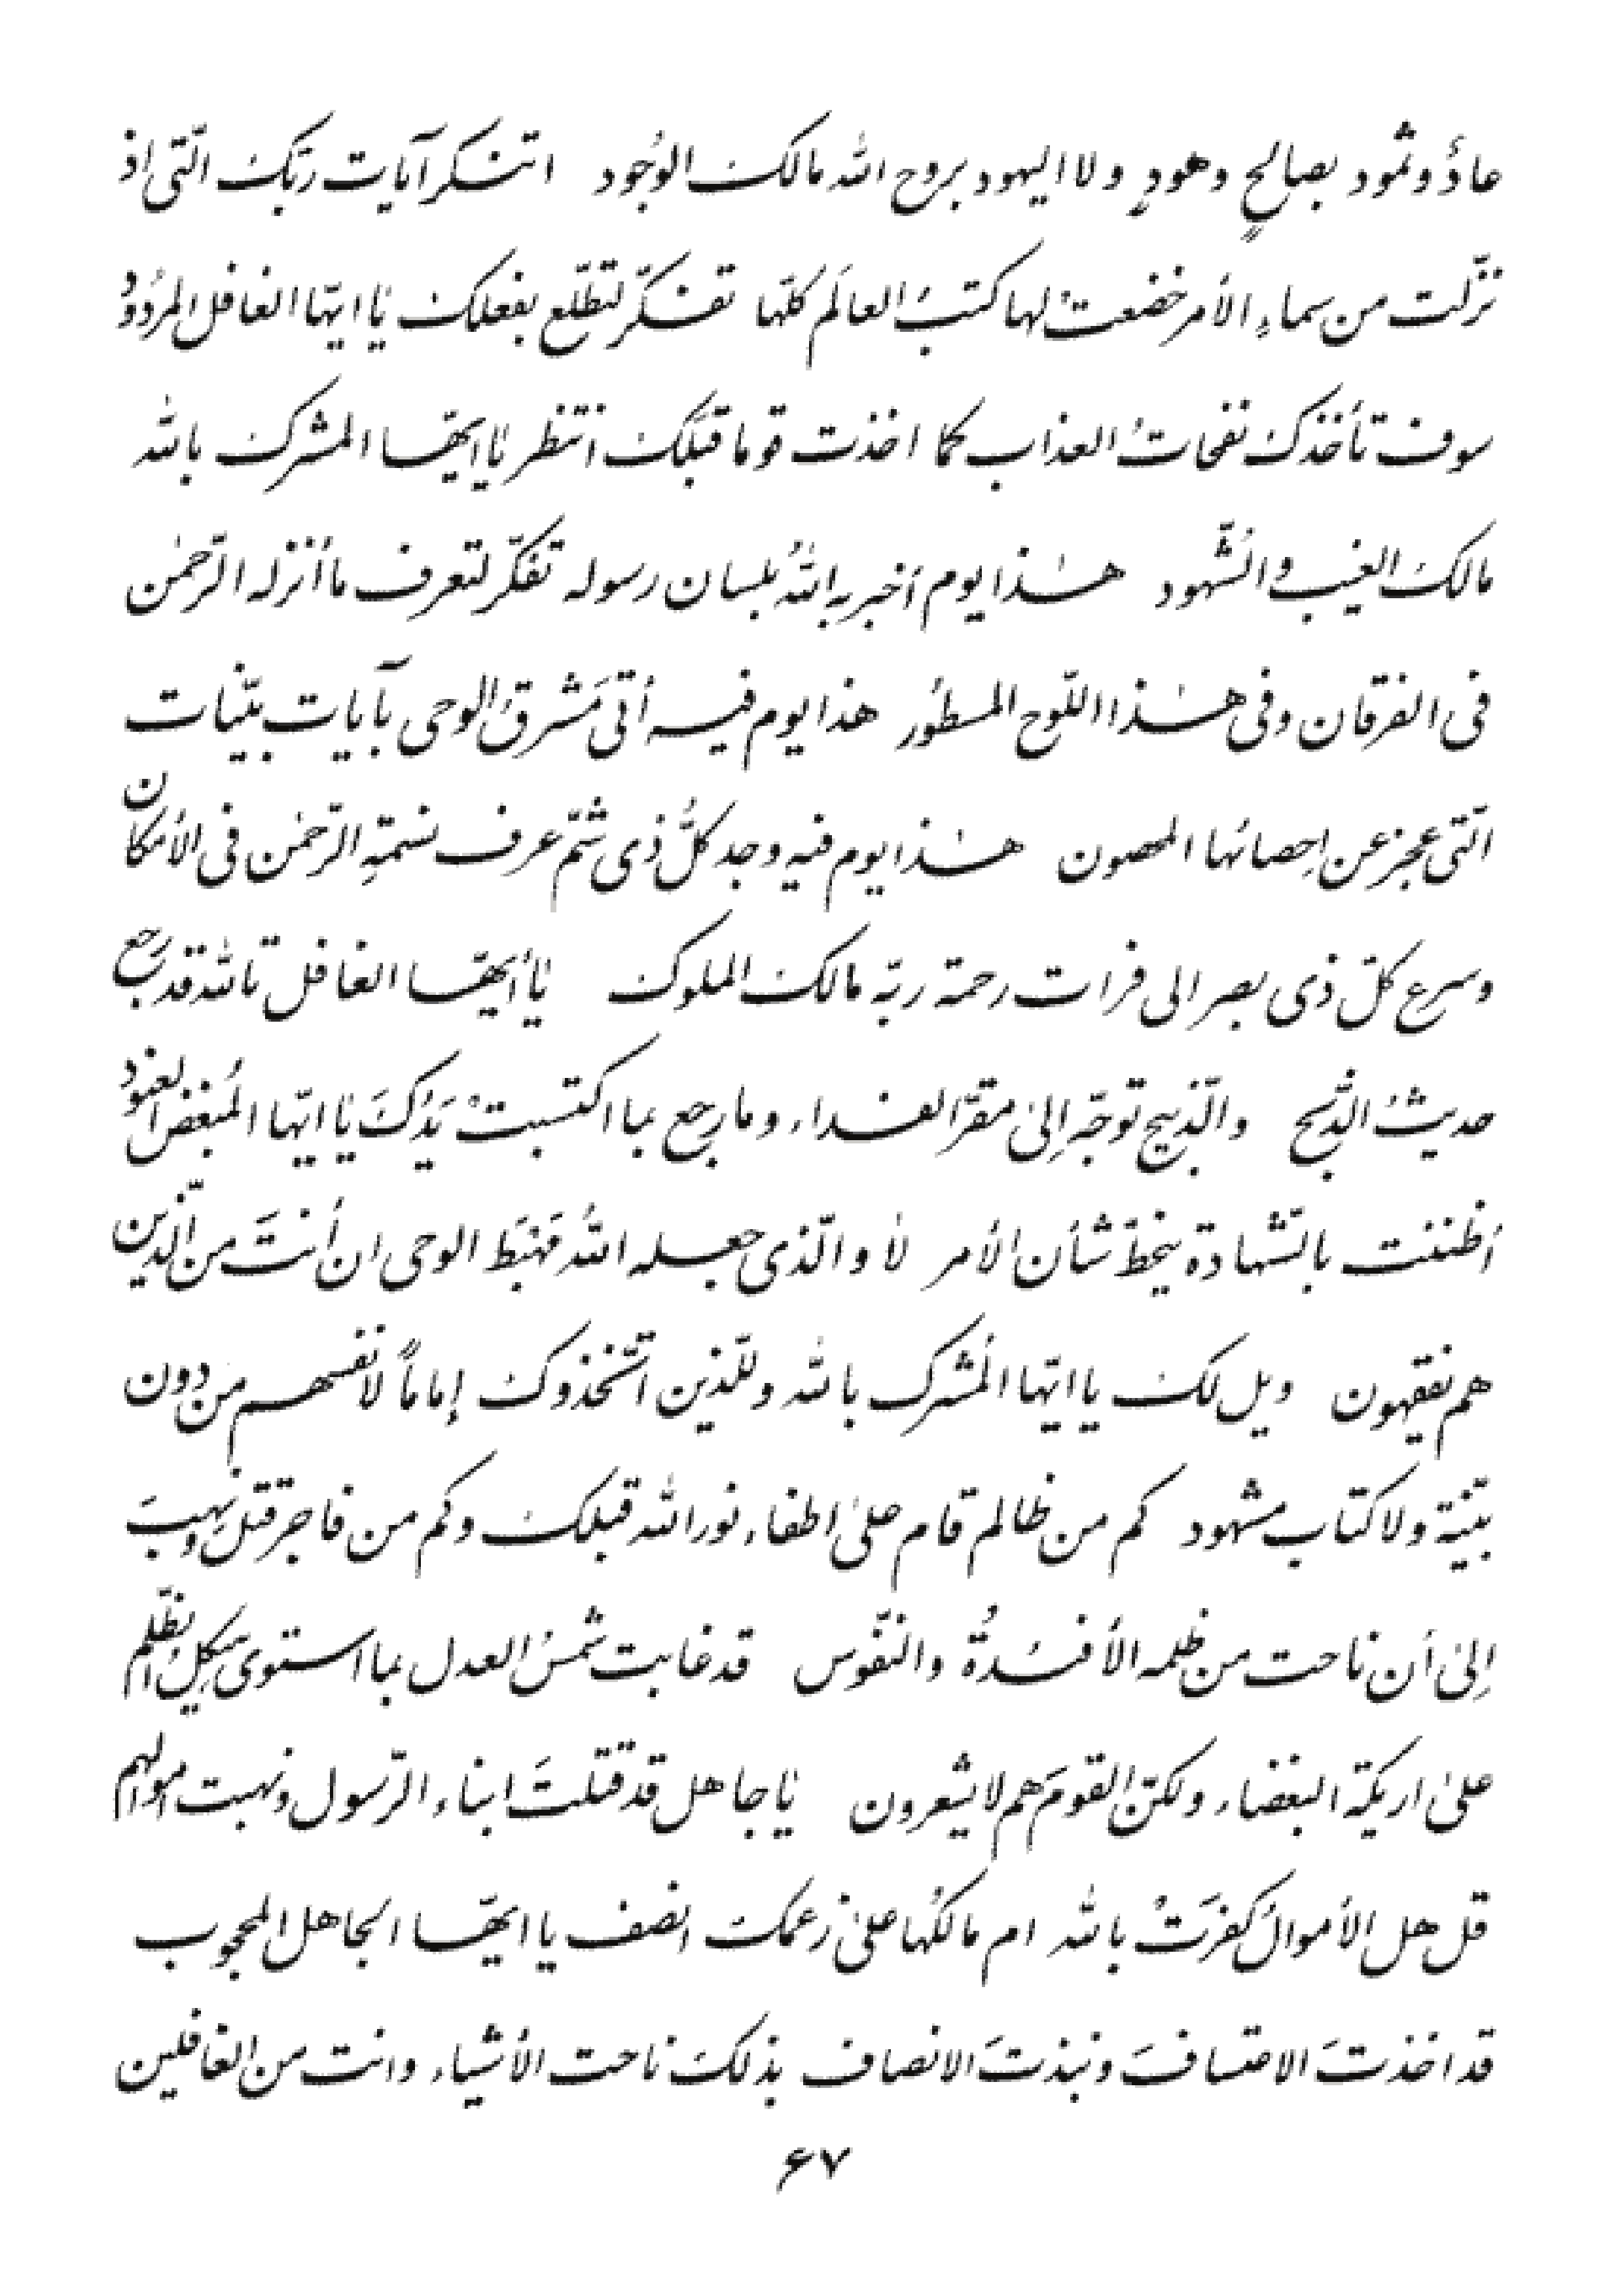 عادٌ وثمود بصالحٍ وهودٍ ولا اليهود بروح الله مالك الوُجود اتنكر آيات ربّك الّتی اذ
نزّلت من سماءِ الأمر خضعتْ لها كتبُ العالَم كلّها تفكّر لتطّلع بفعلك يا ايّها الغافل المردُودُ
سوف تأخذك نفحاتُ العذاب كما اخذت قوما قبلَك انتظر يا ايّها المشرك بالله
مالك الغيب والشّهود هٰذا يوم أخبر به اللهُ بلسان رسوله تفكّر لتعرف ما أنزله الرّحمٰن
فی الفرقان وفی هٰذا اللّوح المسطُور هذا يوم فيه أتی مَشرقُ الوحی بآيات بيّنات
الّتی عجز عن إحصائها المحصون هٰذا يوم فيه وجد كلُّ ذی شمّ عرف نسمةِ الرّحمٰن فی الأمكان
وسرع كلّ ذی بصر الی فرات رحمة ربّه مالك الملوك يا أيّها الغافل تالله قد رجع
حديثُ الذّبح والذّبيح توجّه إلیٰ مقرّ الفداء وما رجع بما اكتسبتْ يَدُكَ يا ايّها المُبغض العنود
أظننت بالشّهادة ينحطّ شأن الأمر لا والّذی جعله اللهُ مَهبَطَ الوحی ان أنتَ من الّذين
هم يفقهون ويل لك يا ايّها المُشرك بالله وللّذين اتّخذوك إماماً لأنفسهم من دون
بيّنة ولا كتاب مشهود كم من ظالم قام علیٰ اطفاء نور الله قبلك وكم من فاجر قتل ونهبَ
إلیٰ أن ناحت من ظلمه الأفئدةُ والنّفوس قد غابت شمسُ العدل بما استوی هيكلُ الظّلم
علیٰ اريكة البغضاء ولكنّ القومَ هم لا يشعرون يا جاهل قد قتلتَ ابناء الرّسول ونهبت اموالهم
قل هل الأموالُ كفرَتْ بالله ام مالكُها علیٰ زعمك انصف يا ايّها الجاهل المحجوب
قد اخذتَ الاعتسافَ ونبذتَ الانصاف بذلك ناحت الأشياء وانت من الغافلين
۶۷